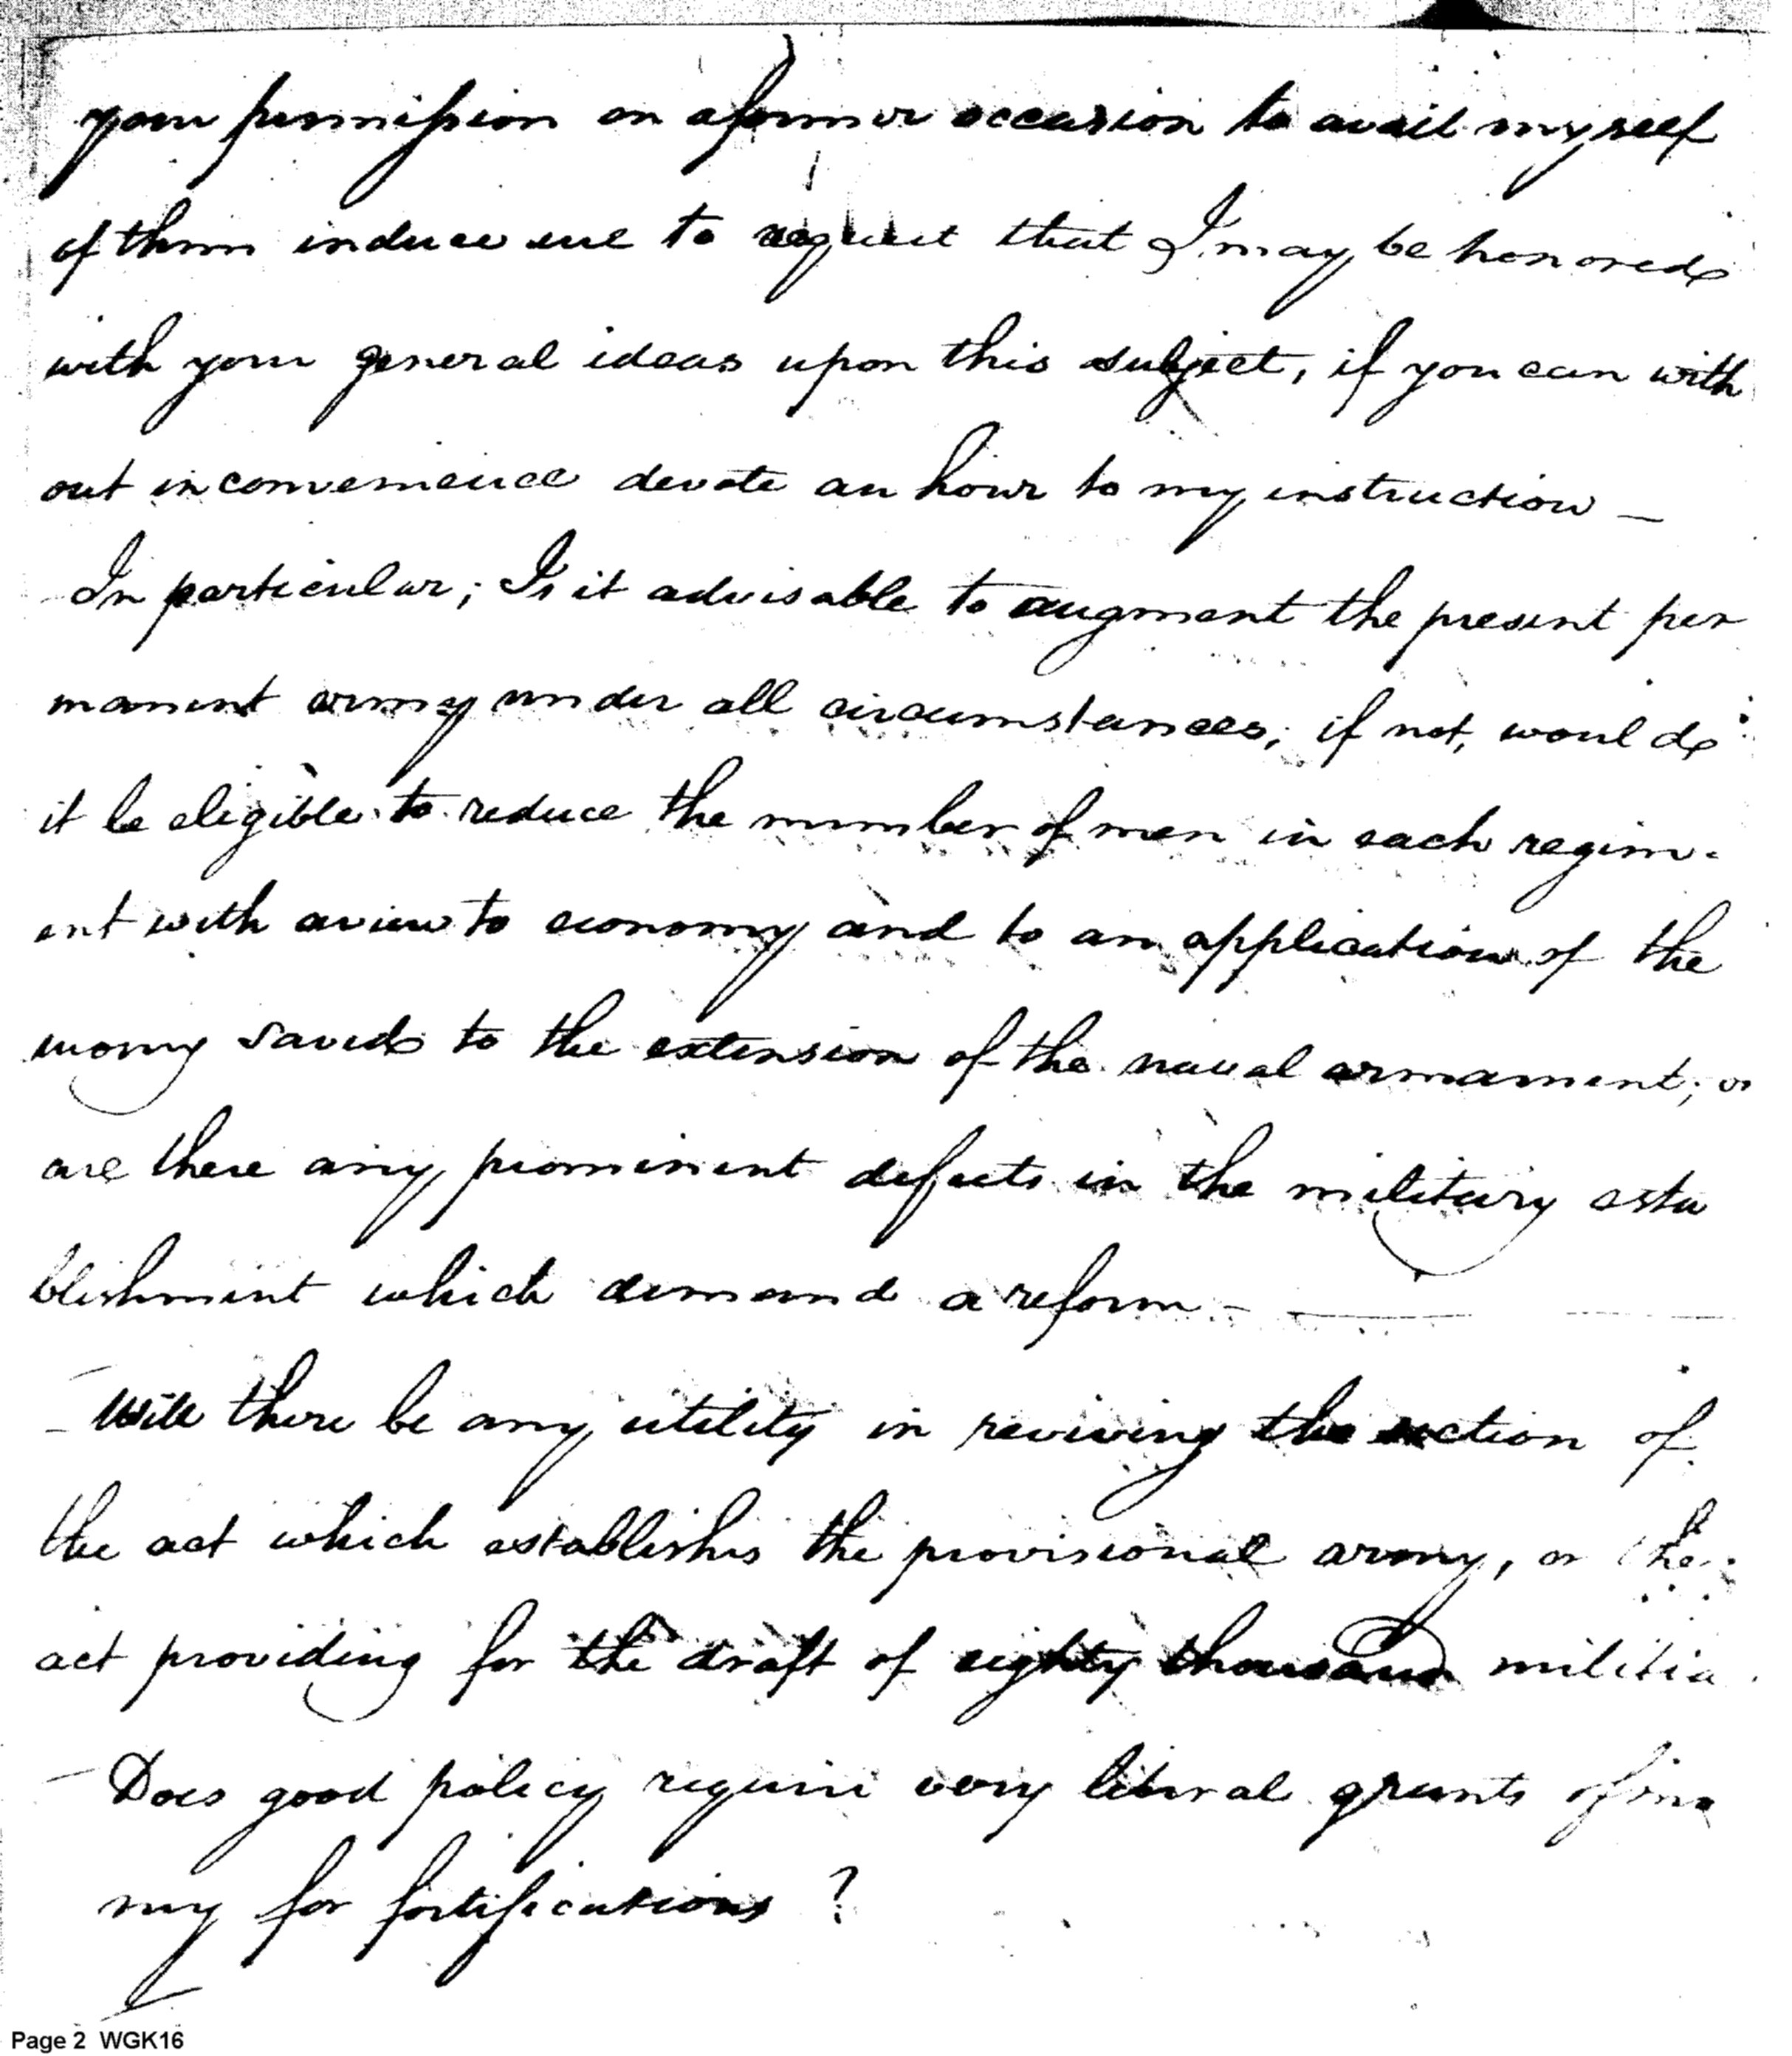 your permission on a former occasion to avail myself
of them induce me to request that I may be honored
with your general ideas upon this subject, if you can with
out inconvenience devote an hour to my instruction —
In particular; Is it advisable to augment the present per
manent army under all circumstances; if not, would
it be eligible to reduce the number of men in each regim-
ent with a view to economy and to an application of the
money saved to the extension of the naval armament; or
are there any prominent defects in the military esta
blishment which demand a reform — —
— Will there be any utility in reviving the section of
the act which establishes the provisional army, or the
act providing for the draft of eighty thousand militia
— Does good policy require very liberal grants of mo
ney for fortifications ?
Page 2 WGK16